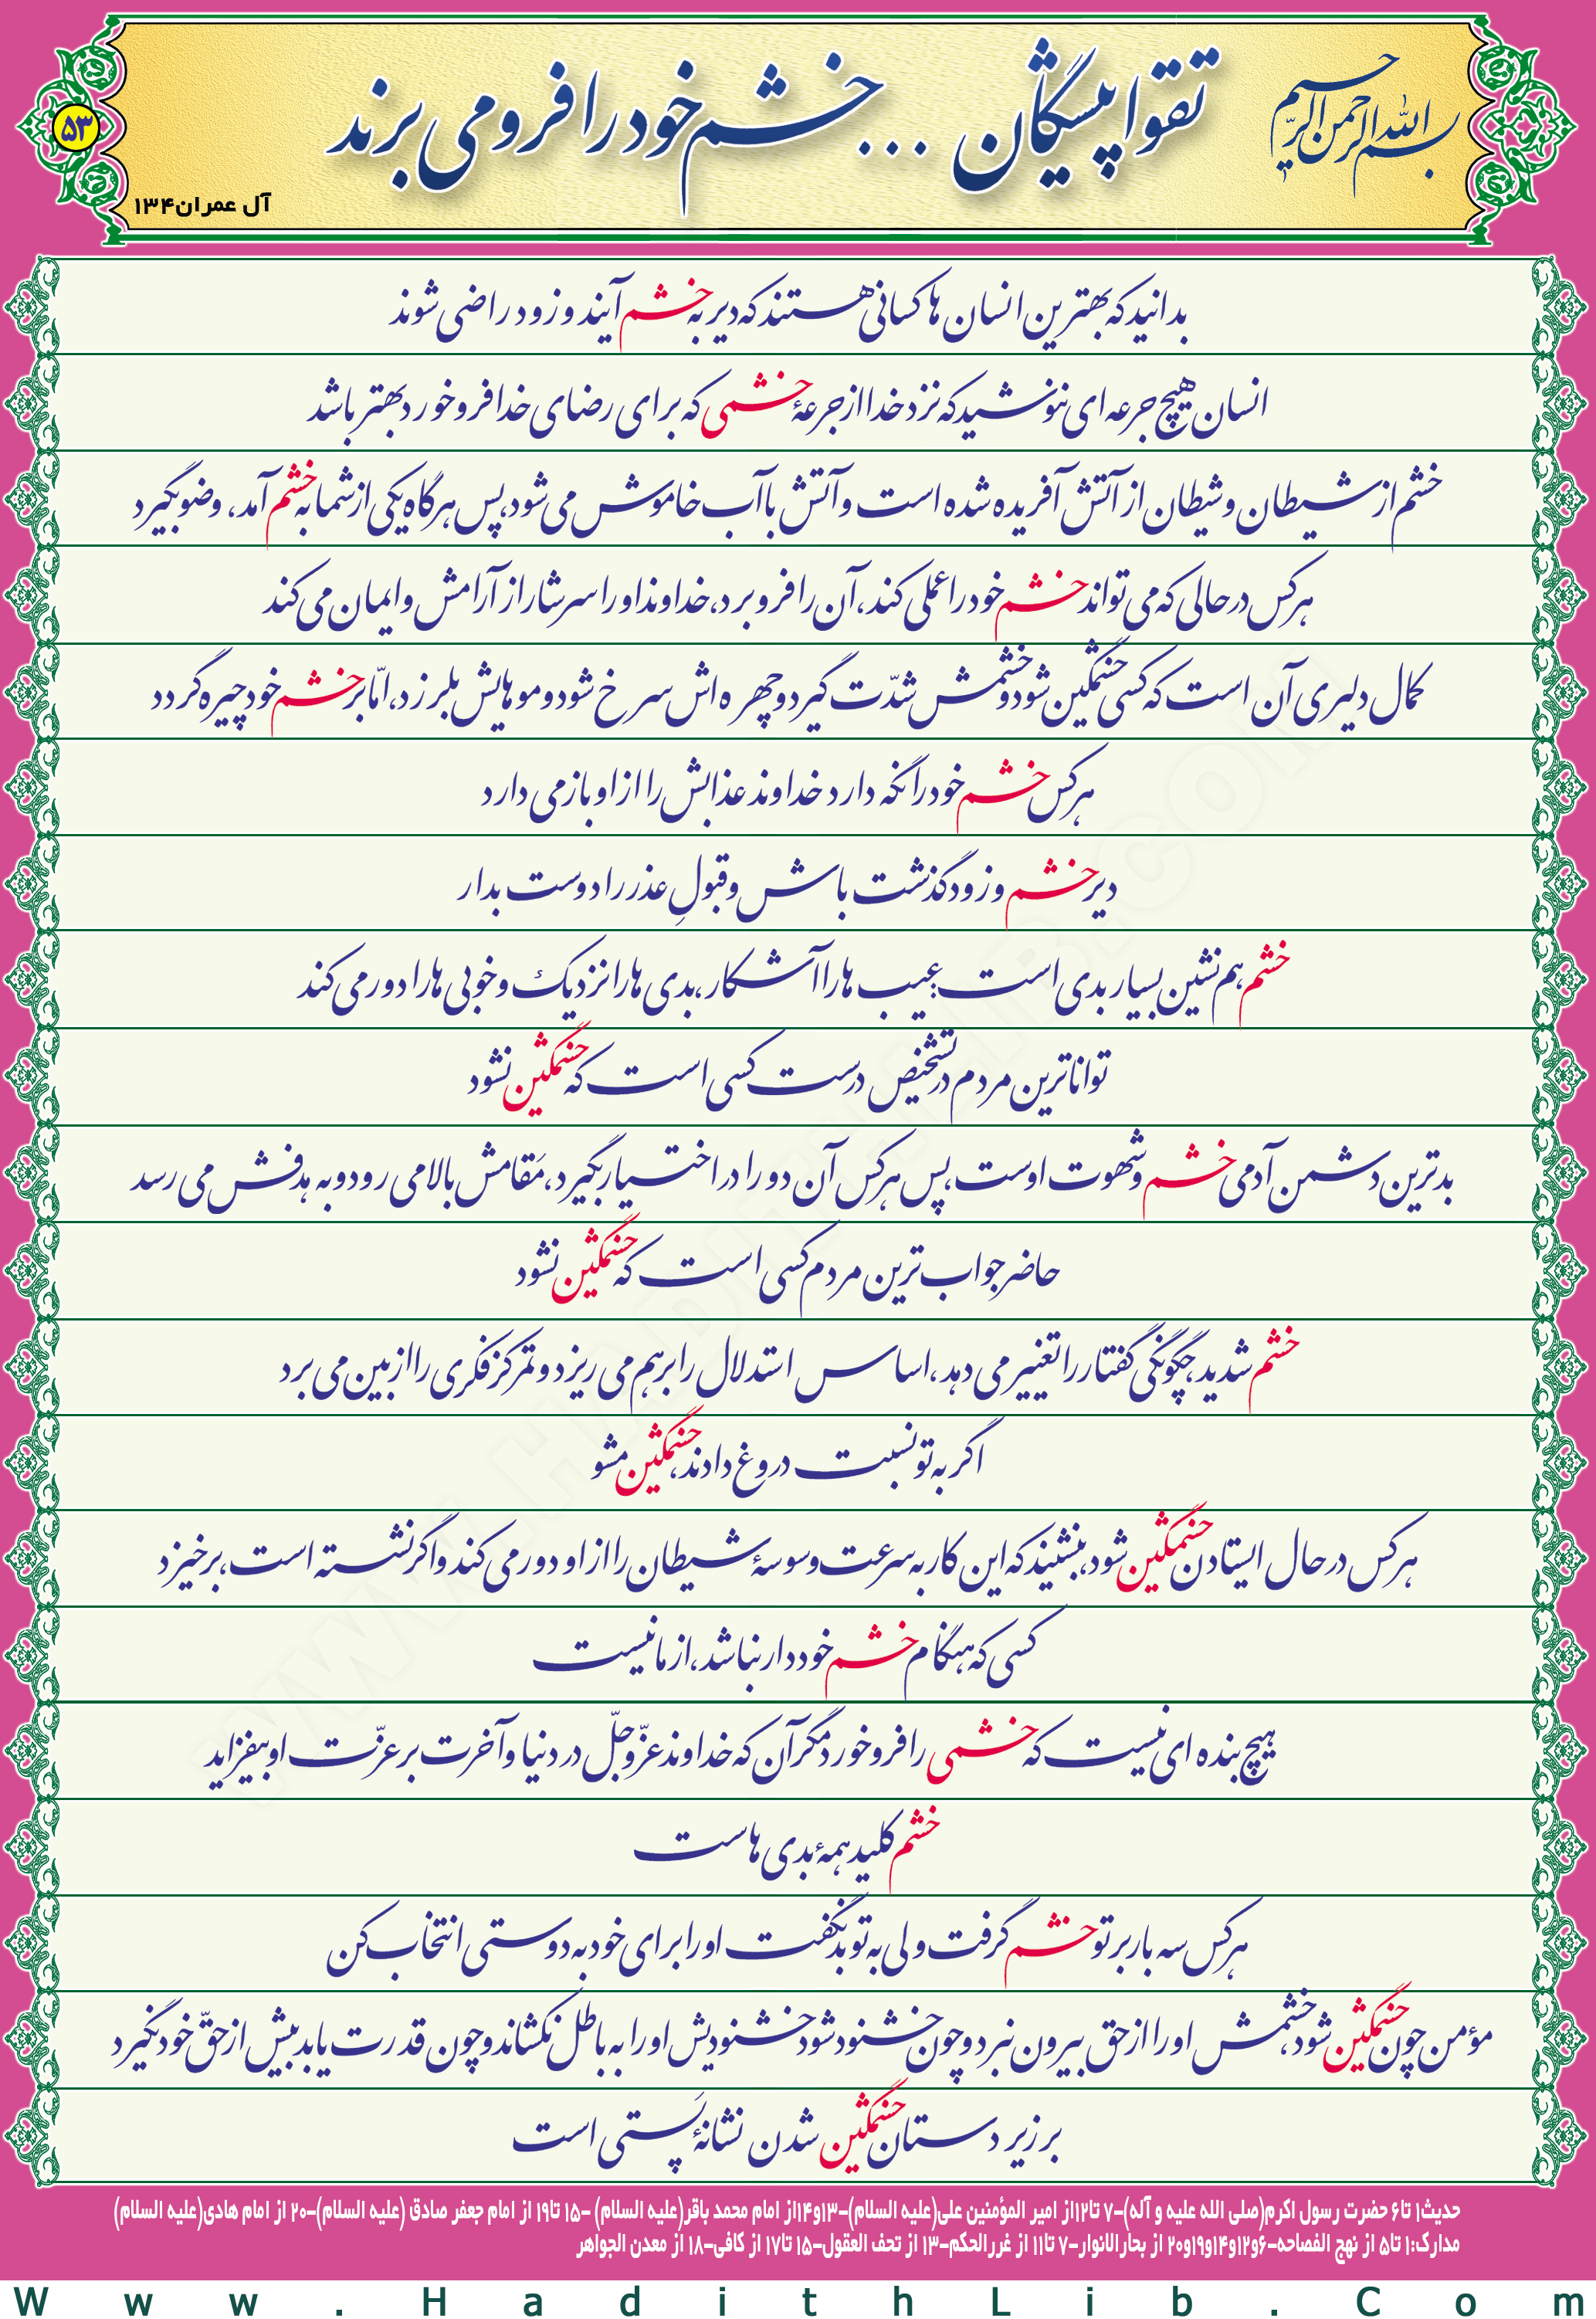 بسم الله الرحمن الرحیم
تقوا پیشگان ... خشم خود را فرو می برند
آل عمران۱۳۴
۵۳
بدانید که بهترین انسان ها کسانی هستند که دیر به خشم آیند و زود راضی شوند
انسان هیچ جرعه ای ننوشید که نزد خدا از جرعهٔ خشمی که برای رضای خدا فرو خورد بهتر باشد
خشم از شیطان و شیطان از آتش آفریده شده است و آتش با آب خاموش می شود، پس هر گاه یکی از شما به خشم آمد، وضو بگیرد
هر کس در حالی که می تواند خشم خود را عملی کند، آن را فرو برد، خداوند او را سرشار از آرامش و ایمان می کند
کمال دلیری آن است که کسی خشمگین شود و خشمش شدّت گیرد و چهره اش سرخ شود و موهایش بلرزد، امّا بر خشم خود چیره گردد
هر کس خشم خود را نگه دارد خداوند عذابش را از او باز می دارد
دیر خشم و زود گذشت باش و قبولِ عذر را دوست بدار
خشم هم نشین بسیار بدی است؛ عیب ها را آشکار، بدی ها را نزدیک و خوبی ها را دور می کند
تواناترین مردم در تشخیص درست کسی است که خشمگین نشود
بدترین دشمن آدمی خشم و شهوت اوست، پس هر کس آن دو را در اختیار بگیرد، مَقامش بالا می رود و به هدفش می رسد
حاضر جواب ترین مردم کسی است که خشمگین نشود
خشم شدید، چگونگی گفتار را تغییر می دهد، اساس استدلال را بر هم می ریزد و تمرکز فکری را از بین می برد
اگر به تو نسبت دروغ دادند، خشمگین مشو
هر کس در حال ایستادن خشمگین شود، بنشیند که این کار به سرعت وسوسهٔ شیطان را از او دور می کند و اگر نشسته است، برخیزد
کسی که هنگام خشم خوددار نباشد، از ما نیست
هیچ بنده ای نیست که خشمی را فرو خورد مگر آن که خداوند عزّ و جلّ در دنیا و آخرت بر عزّت او بیفزاید
خشم کلید همهٔ بدی هاست
هر کس سه بار بر تو خشم گرفت ولی به تو بد نگفت او را برای خود به دوستی انتخاب کن
مؤمن چون خشمگین شود، خشمش او را از حق بیرون نبرد و چون خشنود شود خشنودیش او را به باطل نکشاند و چون قدرت یابد بیش از حقّ خود نگیرد
بر زیر دستان خشمگین شدن نشانهٔ پَستی است
حدیث۱ تا۶ حضرت رسول اکرم(صلی الله علیه و آله)-۷ تا۱۲از امیر المؤمنین علی(علیه السلام)-۱۳و۱۴از امام محمد باقر(علیه السلام) -۱۵ تا۱۹ از امام جعفر صادق (علیه السلام)-۲۰ از امام هادی(علیه السلام)
مدارک:۱ تا۵ از نهج الفصاحه-۶و۱۲و۱۴و۱۹و۲۰ از بحارالانوار-۷ تا۱۱ از غررالحکم-۱۳ از تحف العقول-۱۵ تا۱۷ از کافی-۱۸ از معدن الجواهر
Www.HadithLib.Com